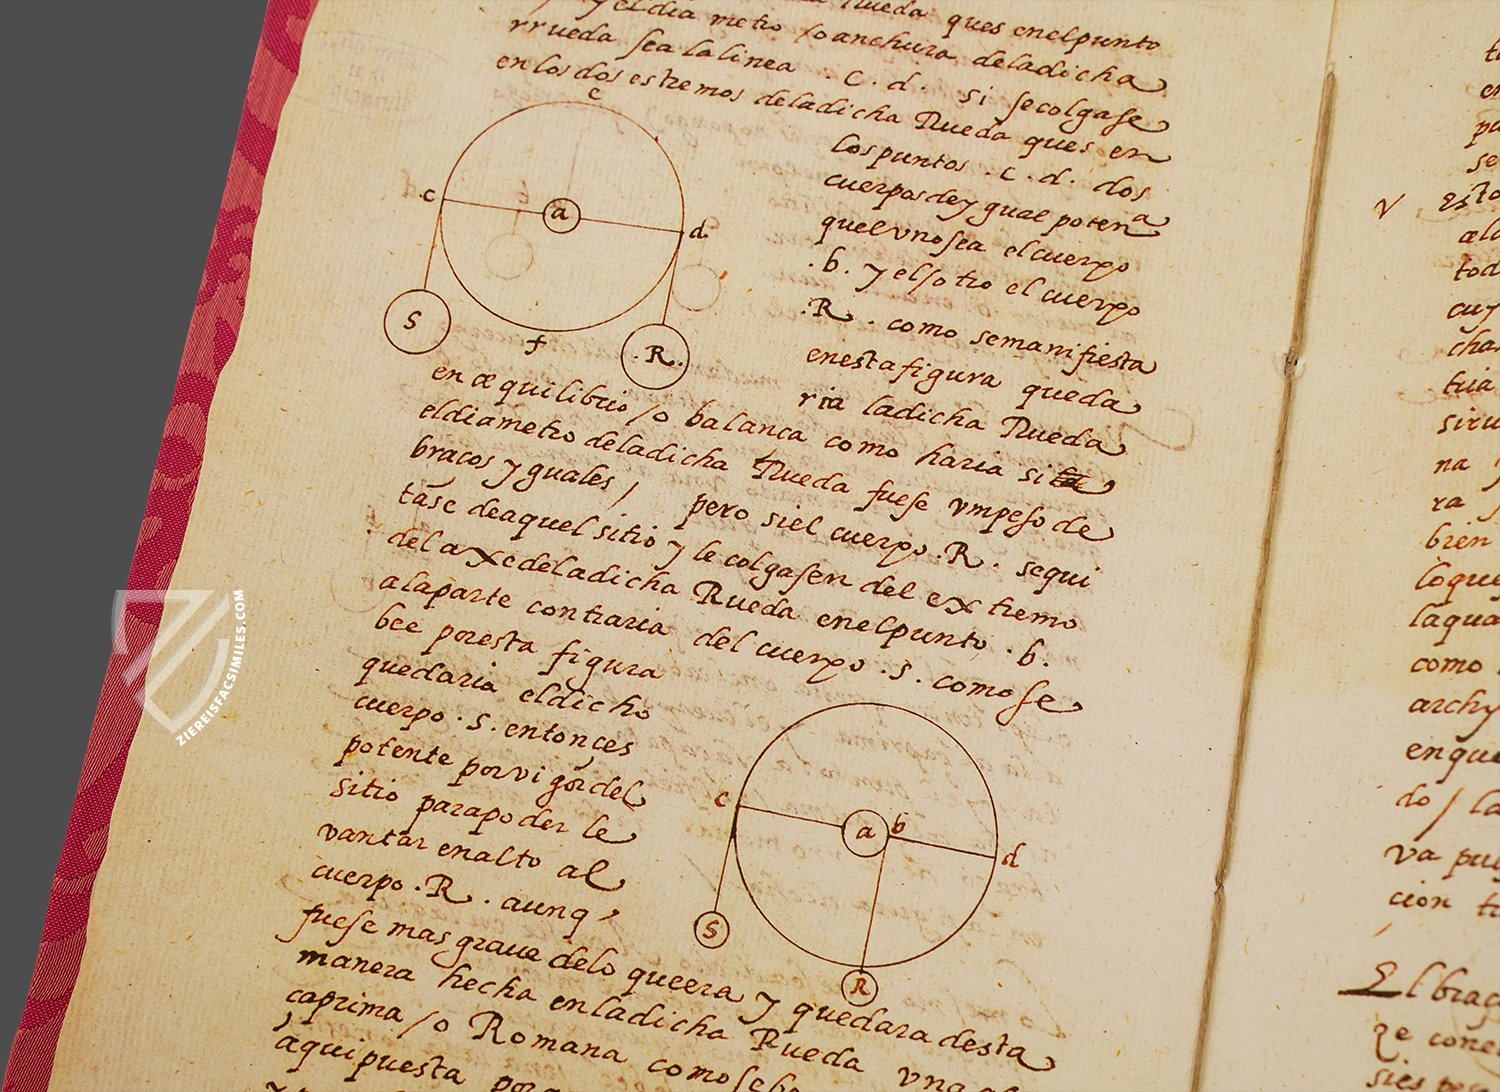 Rueda ques enelpunto
y eldia metro /o anchura deladicha
rrueda sea lalinea . C . d . si secolgase
en los dos estremos deladicha Rueda ques en
los puntos . c . d . dos
cuerpos de y gual potena
quel vno sea el cuerpo
. b . y el /o tro el cuerpo
. R . como semanifiesta
enesta figura queda
ria ladicha Rueda
en æquilibrio /o balança como haria si
eldiametro deladicha Rueda fuese vmpeso de
braços y guales / pero siel cuerpo . R . sequi
tase deaquel sitio y le colgasen del extremo
del axe deladicha Rueda enelpunto . b .
alaparte contraria del cuerpo . s . como se
bee poresta figura
quedaria eldicho
cuerpo . s . entonçes
potente por vigor del
sitio para poder le
vantar enalto al
cuerpo . R . aunq
fuese mas graue delo queera y quedara desta
manera hecha enladicha Rueda vna
caprima /o Romana como
aqui puesta
e
c
a
d
S
f
. R .
c
a
b
d
S
R
v
Esto
tod
cha
tua
na
ra
bien
loque
laqua
como
archy
enque
do / la
va
cion
El braç
ze cone
ZIEREISFACSIMILES.COM